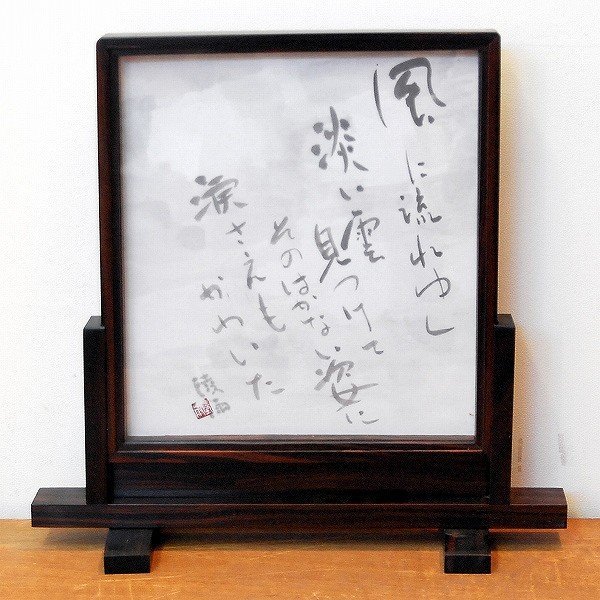 風に流れゆく
淡い雲見つけて
そのはかない姿に
涙さえも
かわいた